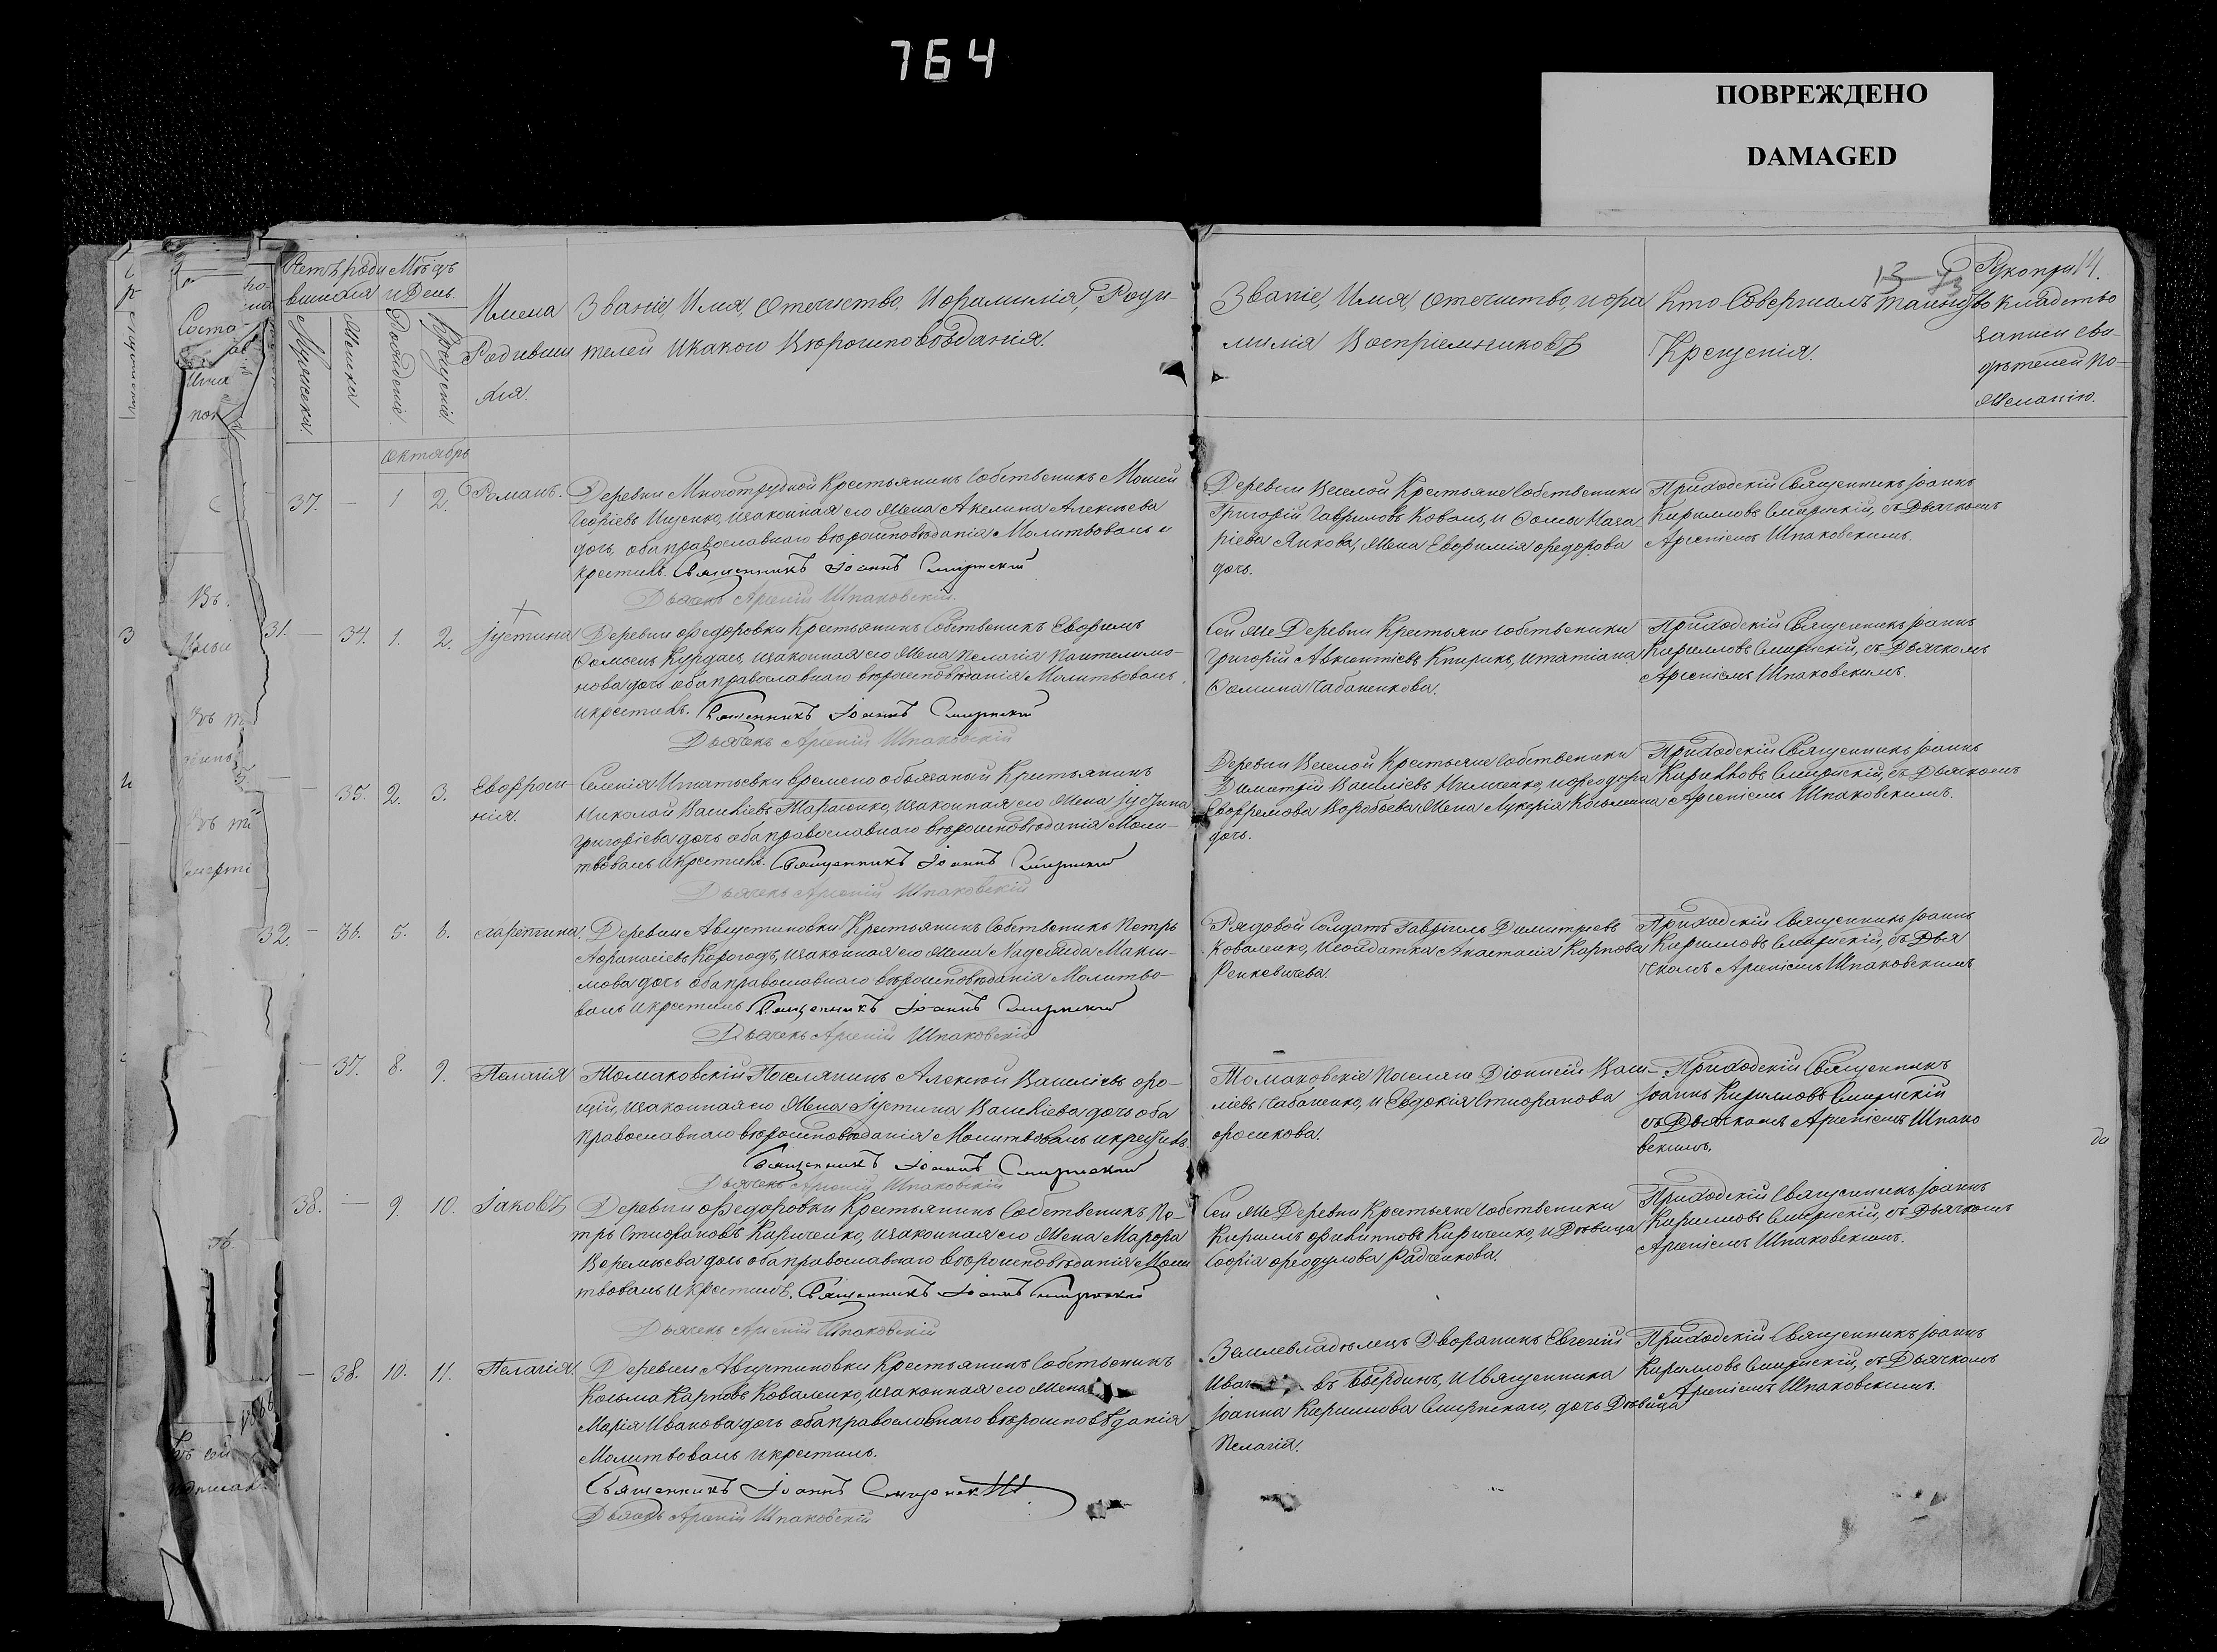 764
ПОВРЕЖДЕНО
DAMAGED
Счетъ роди
вшихся
Мѣсяцъ
и День.
Мужеска.
Женска
Рожденія.
Крещенія.
Имена
Родивши
хся.
Званіе, Имя, Отечество, и фамилія, Роди-
телей и какого Вѣроисповѣданія.
Званіе, Имя, Отечество, и фа
милія Воспріемниковъ
Кто Совершалъ таинство
Крещенія.
13
14.
Рукопри
кладство
записи сви-
дѣтелей по-
желанію.
октябрь
37. — 1 2. Романъ.
Деревни Многотрудной Крестьянинъ Собственикъ Моисей
Георгіевъ Ищенко, и законная его жена Акелина Алексѣева
дочь, оба православнаго вѣроисповѣданія Молитвовалъ и
крестилъ. Священникъ Іоаннъ Смирнскій
Дьячекъ Арсеній Шпаковскій.
Деревни Веселой Крестьяне Собственики
Григорій Гавриловъ Коваль, и Фомы Мака
ріева Янкова, жена Евфимія Федорова
дочь.
Приходскій Священникъ Іоаннъ
Кирилловъ Смирнскій, съ Дьячкомъ
Арсеніемъ Шпаковскимъ.
31. — 34. 1. 2. Іустина
Деревни Федоровки Крестьянинъ Собственикъ Евфимъ
Фоминъ Курдасъ, и законная его жена Пелагія Пантелимо-
нова дочь оба православнаго вѣроисповѣданія Молитвовалъ
и крестилъ. Священникъ Іоаннъ Смирнскій
Дьячекъ Арсеній Шпаковскій
Сей же Деревни Крестьяне собственики
Григорій Авксентіевъ Кнырикъ, и Татіана
Фомина Чабаненкова.
Приходскій Священникъ Іоаннъ
Кирилловъ Смирнскій, съ Дьячкомъ
Арсеніемъ Шпаковскимъ.
— 35. 2. 3. Евфроси-
нія.
Селенія Игнатьевки временно обязаный Крестьянинъ
Николай Васильевъ Тарасенко, и законная его жена Іустина
Григоріева дочь оба православнаго вѣроисповѣданія Моли-
твовалъ и крестилъ. Священникъ Іоаннъ Смирнскій
Дьячекъ Арсеній Шпаковскій
Деревни Веселой Крестьяне Собственики
Димитрій Васильевъ Ильченко, и Феодора
Ефремова Воробьева жена Лукерія Косьмина
дочь.
Приходскій Священникъ Іоаннъ
Кирилловъ Смирнскій, съ Дьячкомъ
Арсеніемъ Шпаковскимъ.
32. — 36. 5. 6. Харитина.
Деревни Августиновки Крестьянинъ Собственикъ Петръ
Афанасіевъ Корогодъ, и законная его жена Надежда Макси-
мова дочь оба православнаго вѣроисповѣданія Молитво-
валъ и крестилъ Священникъ Іоаннъ Смирнскій
Дьячекъ Арсеній Шпаковскій
Рядовой Солдатъ Гавріилъ Димитріевъ
Коваленко, и солдатка Анастасія Карпова
Ренкевичева.
Приходскій Священникъ Іоаннъ
Кирилловъ Смирнскій, съ Дья
чкомъ Арсеніемъ Шпаковскимъ
— 37. 8. 9. Пелагія
Томаковскій Поселянинъ Алексѣй Васильевъ Фо-
цій, и законная его жена Іустина Васильева дочь оба
православнаго вѣроисповѣданія Молитвовалъ и крестилъ.
Священникъ Іоаннъ Смирнскій
Дьячекъ Арсеній Шпаковскій
Томаковскіе Поселяне Діонисій Васи-
ліевъ Чабаненко, и Евдокія Стефанова
Фосикова.
Приходскій Священникъ
Іоаннъ Кирилловъ Смирнскій
съ Дьячкомъ Арсеніемъ Шпако
вскимъ.
38. — 9. 10. Іаковъ
Деревни Федоровки Крестьянинъ Собственикъ Пе-
тръ Стефановъ Кириченко, и законная его жена Марфа
Веремѣева дочь оба православнаго вѣроисповѣданія Моли
твовалъ и крестилъ. Священникъ Іоаннъ Смирнскій
Дьячекъ Арсеній Шпаковскій
Сей же Деревни Крестьяне Собственики
Кириллъ Филипповъ Кириченко, и Дѣвица
Софія Феодулова Радченкова.
Приходскій Священникъ Іоаннъ
Кирилловъ Смирнскій, съ Дьячкомъ
Арсеніемъ Шпаковскимъ.
— 38. 10. 11. Пелагія.
Деревни Августиновки Крестьянинъ Собственикъ
Косьма Карповъ Коваленко, и законная его жена
Марія Иванова дочь оба православнаго вѣроисповѣданія
Молитвовалъ и крестилъ.
Священникъ Іоаннъ Смирнскій
Дьячекъ Арсеній Шпаковскій
Землевладѣлецъ Дворянинъ Евгеній
и Священника
Іоанна Кириллова Смирнскаго, дочь Дѣвица
Пелагія.
Приходскій Священникъ Іоаннъ
Кирилловъ Смирнскій, съ Дьячкомъ
Арсеніемъ Шпаковскимъ.